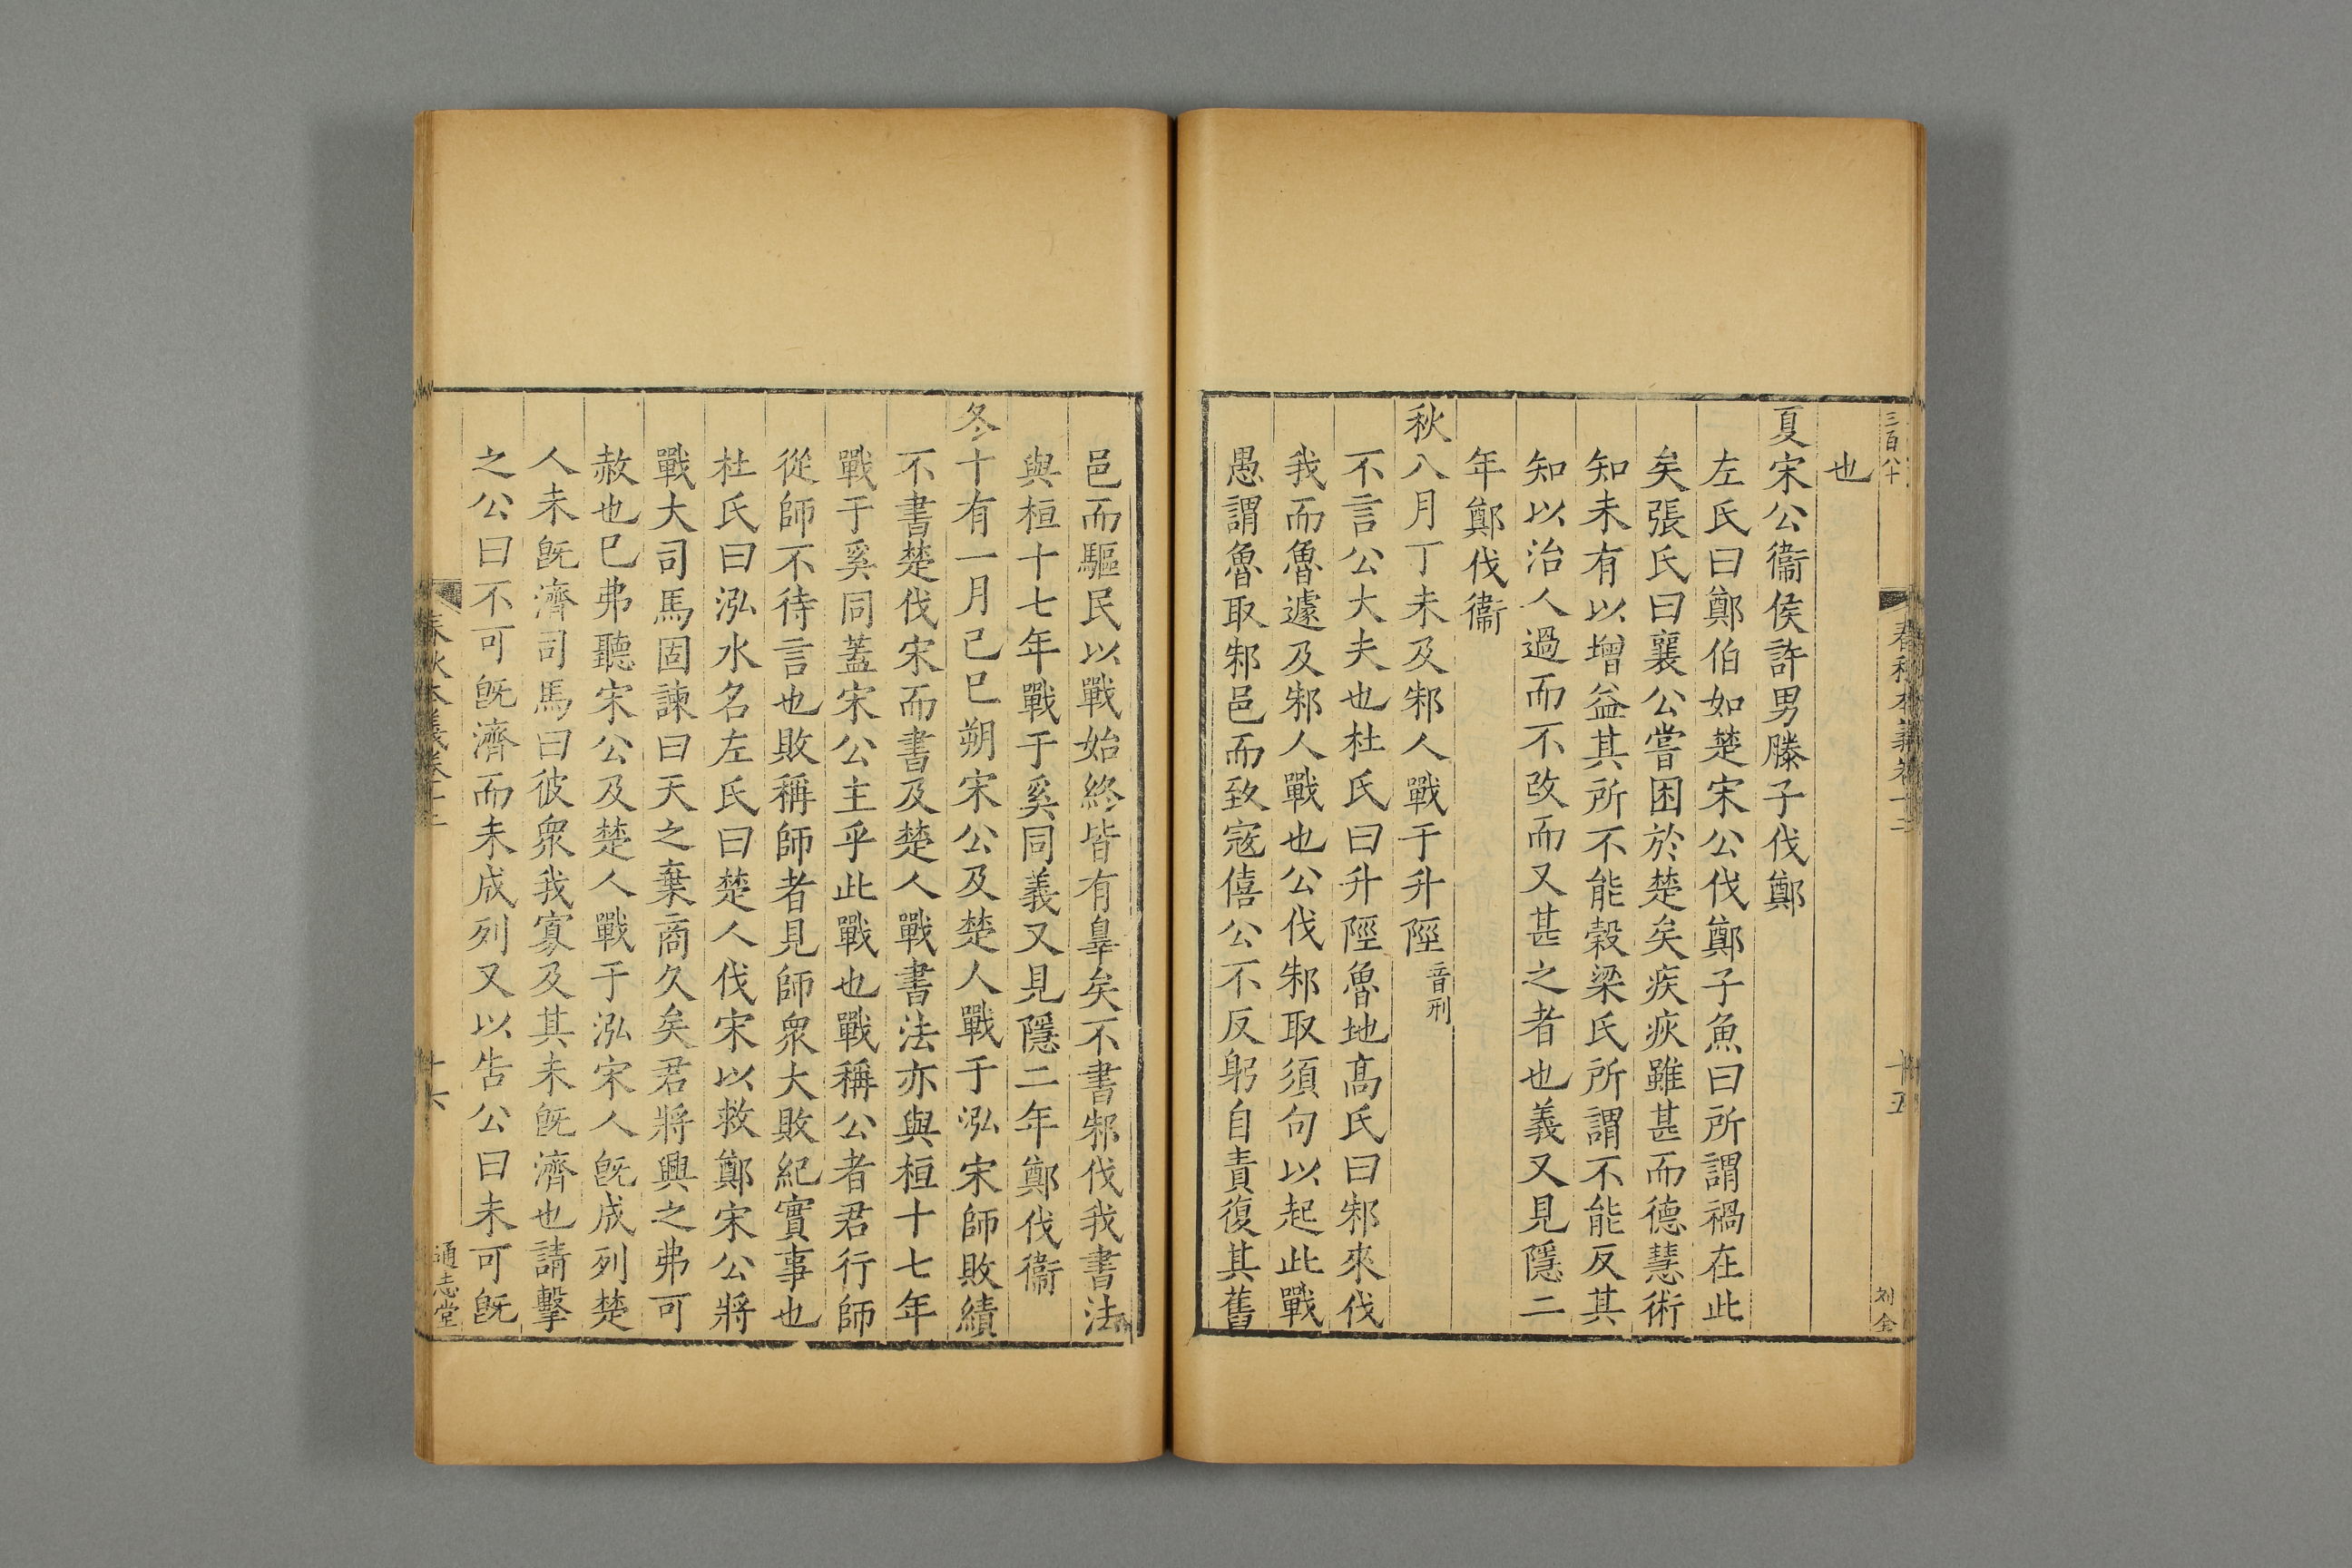 三百八十
春秋本義卷十二
十五
刘全
也
夏宋公衞侯許男滕子伐鄭
左氏曰鄭伯如楚宋公伐鄭子魚曰所謂禍在此
矣張氏曰襄公嘗困於楚矣疾疢雖甚而德慧術
知未有以增益其所不能榖梁氏所謂不能反其
知以治人過而不改而又甚之者也義又見隱二
年鄭伐衞
秋八月丁未及邾人戰于升陘音刑
不言公大夫也杜氏曰升陘魯地髙氏曰邾來伐
我而魯遽及邾人戰也公伐邾取須句以起此戰
愚謂魯取邾邑而致寇僖公不反躬自責復其舊
邑而驅民以戰始終皆有辠矣不書邾伐我書法
與桓十七年戰于奚同義又見隱二年鄭伐衞
冬十有一月己巳朔宋公及楚人戰于泓宋師敗績
不書楚伐宋而書及楚人戰書法亦與桓十七年
戰于奚同蓋宋公主乎此戰也戰稱公者君行師
從師不待言也敗稱師者見師衆大敗紀實事也
杜氏曰泓水名左氏曰楚人伐宋以救鄭宋公將
戰大司馬固諫曰天之棄商久矣君將興之弗可
赦也巳弗聽宋公及楚人戰于泓宋人旣成列楚
人未旣濟司馬曰彼衆我寡及其未旣濟也請擊
之公曰不可旣濟而未成列又以告公曰未可旣
春秋本義卷十二
十六
通志堂